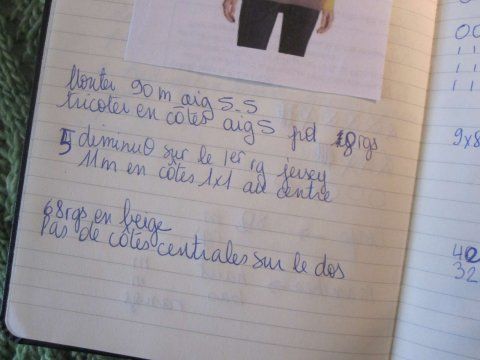 Monter 90 m aig 5.5
tricoter en côtes aig 5 pd 18 rgs
5 diminu⁰ sur le 1er rg jersey
11m en côtes 1x1 au centre
68rgs en beige
Pas de côtes centrales sur le dos
9x8
40
32